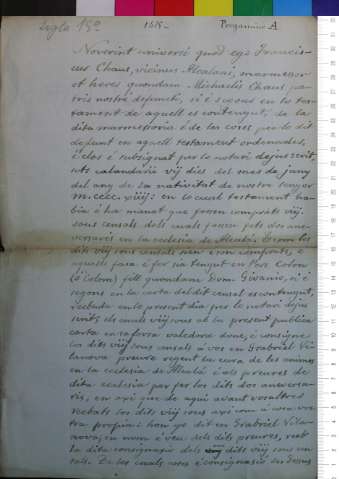 Siglo 15º 1515- Pergamino A
Noverint universi quod ego Francis-
cus Chaus, vicinus Alcalani, marmessor
et heres quondam Michaelis Chaus pa-
tris nostri defuncti, si é segons en lo tes-
tament de aquell es contengut, de la
dita marmessoria é de les coses per lo dit
defunt en aquell testament ordenades,
clos é subsignat per lo notari dejus scrit,
sots calendario vij dies del mes de juny
del any de la nativitat de nostre senyor
m.cccc.viiij: en lo cual testament ha-
bia é ha manat que fossen comprats viij.
sous censals dels cuals fossen fets dos ani-
versaris en la eclesia de Alcalá. E com los
dits viij sous censals sien é son comprats, é
aquells faça é fer sia tengut en Pere Colom
fill quondam Dom si é
segons en la carta del dit censal es contengut,
rebuda en lo present dia per lo notari dejus
scrit; els cuals sous ab la present publica
carta en sa força valedora done, é consigne
los dits viij sous censals a vos en Grabriel Vi-
lanova prevere regent la cura de les animes
en la ecclesia de Alcalá é als preveres de
dita ecclesia per fer los dits dos aniversa-
ris, en axi que de aqui avant vosaltres
rebats los dits viij sous axi com á cosa vos-
tra propia: hon yo dit en Grabriel Vila-
nova, en nom é veu dels dits preveres, reeb
la dita consignasió dels dits viij sous cen-
sals. De les cuals coses é consignasió dessus